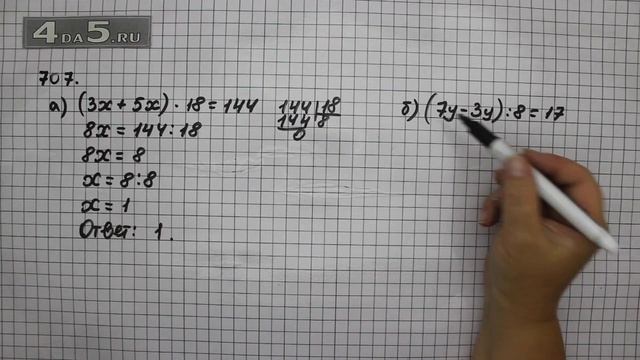 4DA5.RU
707.
а) (3x + 5x) · 18 = 144
8x = 144 : 18
8x = 8
x = 8 : 8
x = 1
Ответ: 1.
144 | 18
144 8
0
б) (7y - 3y) : 8 = 17